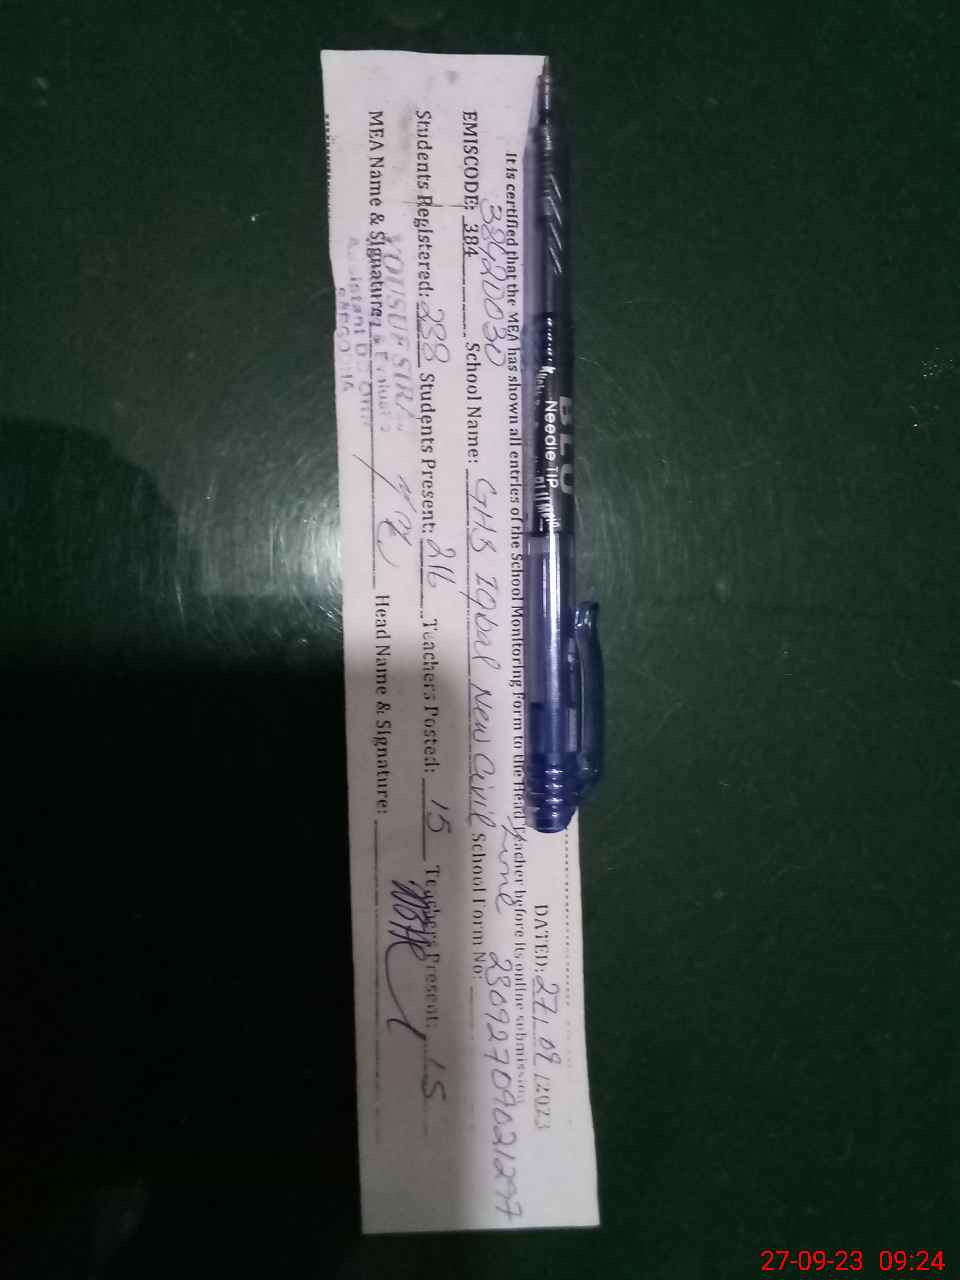 DATED: 27/09/2023
It is certified that the MEA has shown all entries of the School Monitoring Form to the Head Teacher before its online submission
EMISCODE: 384 38420030 School Name: GHS Iqbal New Civil Line School Form No: 23092709021297
Students Registered: 238 Students Present: 216 Teachers Posted: 15 Teachers Present: 15
MEA Name & Signature: Head Name & Signature:
YOUSUF
BLU
Needle TIP
27-09-23 09:24